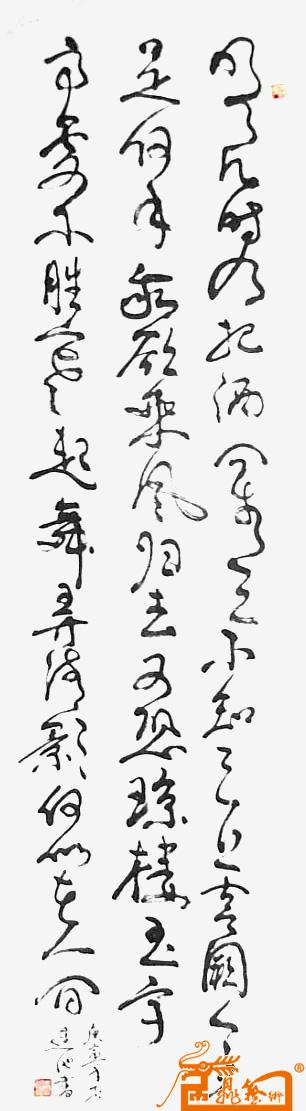 明月几時有把酒问青天不知天上宫闕今夕
是何年我欲乘风归去又恐琼樓玉宇
高处不勝寒起舞弄清影何似在人间
庚寅年